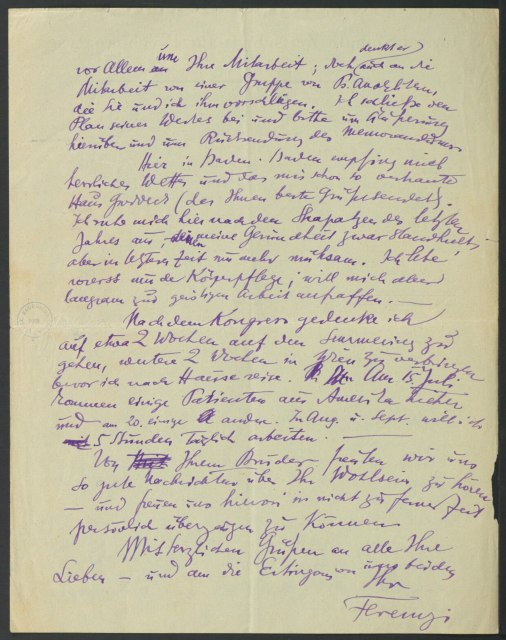 denkt er
vor Allem um Ihre Mitarbeit; doch auch an die
Mitarbeit von einer Gruppe von
die Sie und ich ihm vorschlügen. Ich schließe den
Plan seines Werkes bei und bitte um Äußerung
hierüber und um Rücksendung des Memorandums
Hier in Baden-Baden empfing mich
herrliches Wetter und das mir schon so vertraute
Haus Groddeck (der Ihnen beste Grüße sendet).
Ich ruhe mich hier nach den Strapatzen des letzten
Jahres aus, meine Gesundheit zwar standhielt,
aber in letzter Zeit nur mehr mühsam. Ich lebe
vorerst nur der Körperpflege; will mich aber
langsam zur geistigen Arbeit aufraffen. —
Nach dem Kongress gedenke ich
auf etwa 2 Wochen auf den Semmering zu
gehen, weitere 2 Wochen in Wien zu verbringen
bevor ich nach Hause reise. Am 15 Juli
kommen einige Patienten aus Amerika hieher
und am 20. einige andere. In Aug. u. Sept. will ich
5 Stunden täglich arbeiten. —
Von Ihrem Bruder freuten wir uns
so gute Nachrichten über Ihr Wohlsein zu hören
— und freuen uns hievon in nicht zu ferner Zeit
persönlich überzeugen zu können
Mit herzlichen Grüßen an alle Ihre
Lieben — und an die Eitingons von uns beiden
Ihr
Ferenczi